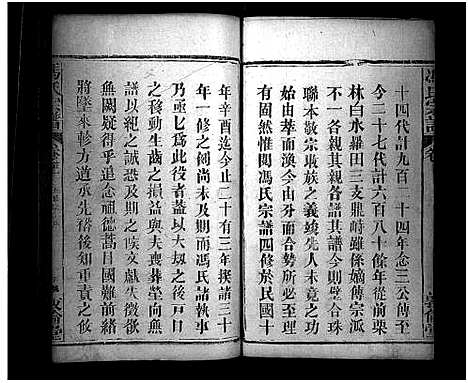 十四代計九百二十四年念三公傳至
今二十七代計六百八十餘年從前栗
林白水羅田三支鼎峙雖係嫡傳宗派
不一各親其親各譜其譜今則璧合珠
聯本敬宗收族之義竣先人未竟之功
始由萃而渙今由分而合勢所必至理
有固然惟閱馮氏宗譜四修於民國十
年辛酉迄今止二十有三年揆諸三十
年一修之例尚未及期而馮氏諸執事
乃亟亟為此役者蓋以大刼之後戶口
之移動生齒之損益與夫喪葬塋向無
譜以紀之誠恐及期之時文獻失徵欲
無闕疑得乎追念祖德蒿目國難前緒
將墜來軫方遒承先裕後知重責之攸
馮氏宗譜
敦倫堂